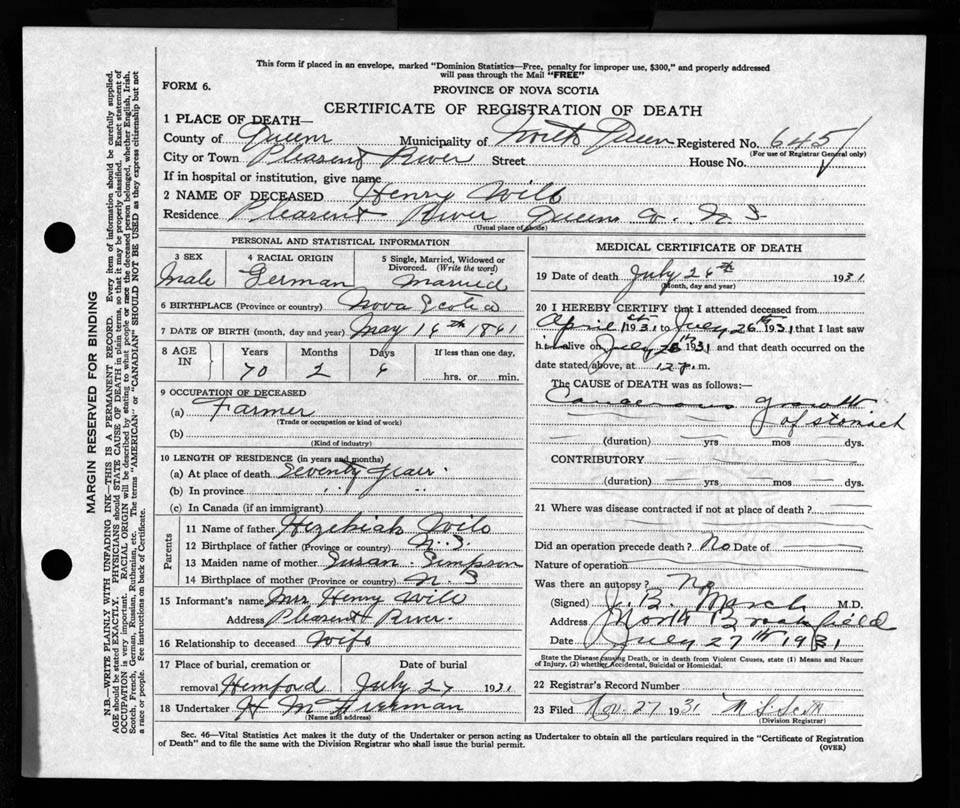 This form if placed in an envelope, marked "Dominion Statistics—Free, penalty for improper use, $300," and properly addressed
will pass through the Mail "FREE"
FORM 6.
PROVINCE OF NOVA SCOTIA
CERTIFICATE OF REGISTRATION OF DEATH
1 PLACE OF DEATH—
County of Queen Municipality of North Queen Registered No. 645
(For use of Registrar General only)
City or Town Pleasent River Street House No.
If in hospital or institution, give name
2 NAME OF DECEASED Henry Wile
Residence Pleasent River Queens Co. N. S
(Usual place of abode)
PERSONAL AND STATISTICAL INFORMATION
3 SEX 4 RACIAL ORIGIN 5 Single, Married, Widowed or
Divorced. (Write the word)
Male German Married
6 BIRTHPLACE (Province or country) Nova Scotia
7 DATE OF BIRTH (month, day and year) May 16th 1861
8 AGE IN Years Months Days If less than one day,
70 2 hrs. or min.
9 OCCUPATION OF DECEASED
(a) Farmer
(Trade or occupation or kind of work)
(b)
(Kind of industry)
10 LENGTH OF RESIDENCE (in years and months)
(a) At place of death Seventy years
(b) In province " "
(c) In Canada (if an immigrant)
Parents
11 Name of father Hezekiah Wile
12 Birthplace of father (Province or country) N. S.
13 Maiden name of mother Susan Simpson
14 Birthplace of mother (Province or country) N. S
15 Informant's name Mrs Henry Wile
Address Pleasent River
16 Relationship to deceased Wife
17 Place of burial, cremation or Date of burial
removal Hemford July 27 1931
18 Undertaker H
(Name and address)
MEDICAL CERTIFICATE OF DEATH
19 Date of death July 26th 1931
(Month, day and year)
20 I HEREBY CERTIFY that I attended deceased from
April 1931 to July 26th 1931 that I last saw
him alive on July 1931 and that death occurred on the
date stated above, at 12 p. m.
The CAUSE OF DEATH was as follows:
Cancerous growth
of stomach
(duration) yrs mos dys.
CONTRIBUTORY
(duration) yrs. mos dys.
21 Where was disease contracted if not at place of death?
Did an operation precede death? No Date of
Nature of operation
Was there an autopsy? No
(Signed) J. B. March M.D.
Address North Brookfield
Date July 27th 1931
State the Disease causing Death, or in death from Violent Causes, state (1) Means and Nature
of Injury, (2) whether Accidental, Suicidal or Homicidal.
22 Registrar's Record Number
23 Filed Nov. 27 1931
(Division Registrar)
Sec. 46—Vital Statistics Act makes it the duty of the Undertaker or person acting as Undertaker to obtain all the particulars required in the "Certificate of Registration
of Death" and to file the same with the Division Registrar who shall issue the burial permit. (OVER)
MARGIN RESERVED FOR BINDING
N.B.—WRITE PLAINLY WITH UNFADING INK—THIS IS A PERMANENT RECORD. Every item of information should be carefully supplied.
AGE should be stated EXACTLY. PHYSICIANS should STATE CAUSE OF DEATH in plain terms, so that it may be properly classified. Exact statement of
OCCUPATION is very important. RACIAL ORIGIN will be described by stating to what people or race the deceased person belonged, whether English, Irish,
Scotch, French, German, Russian, Ruthenian, etc. The terms "AMERICAN" or "CANADIAN" SHOULD NOT BE USED as they express citizenship but not
a race or people. See instructions on back of Certificate.